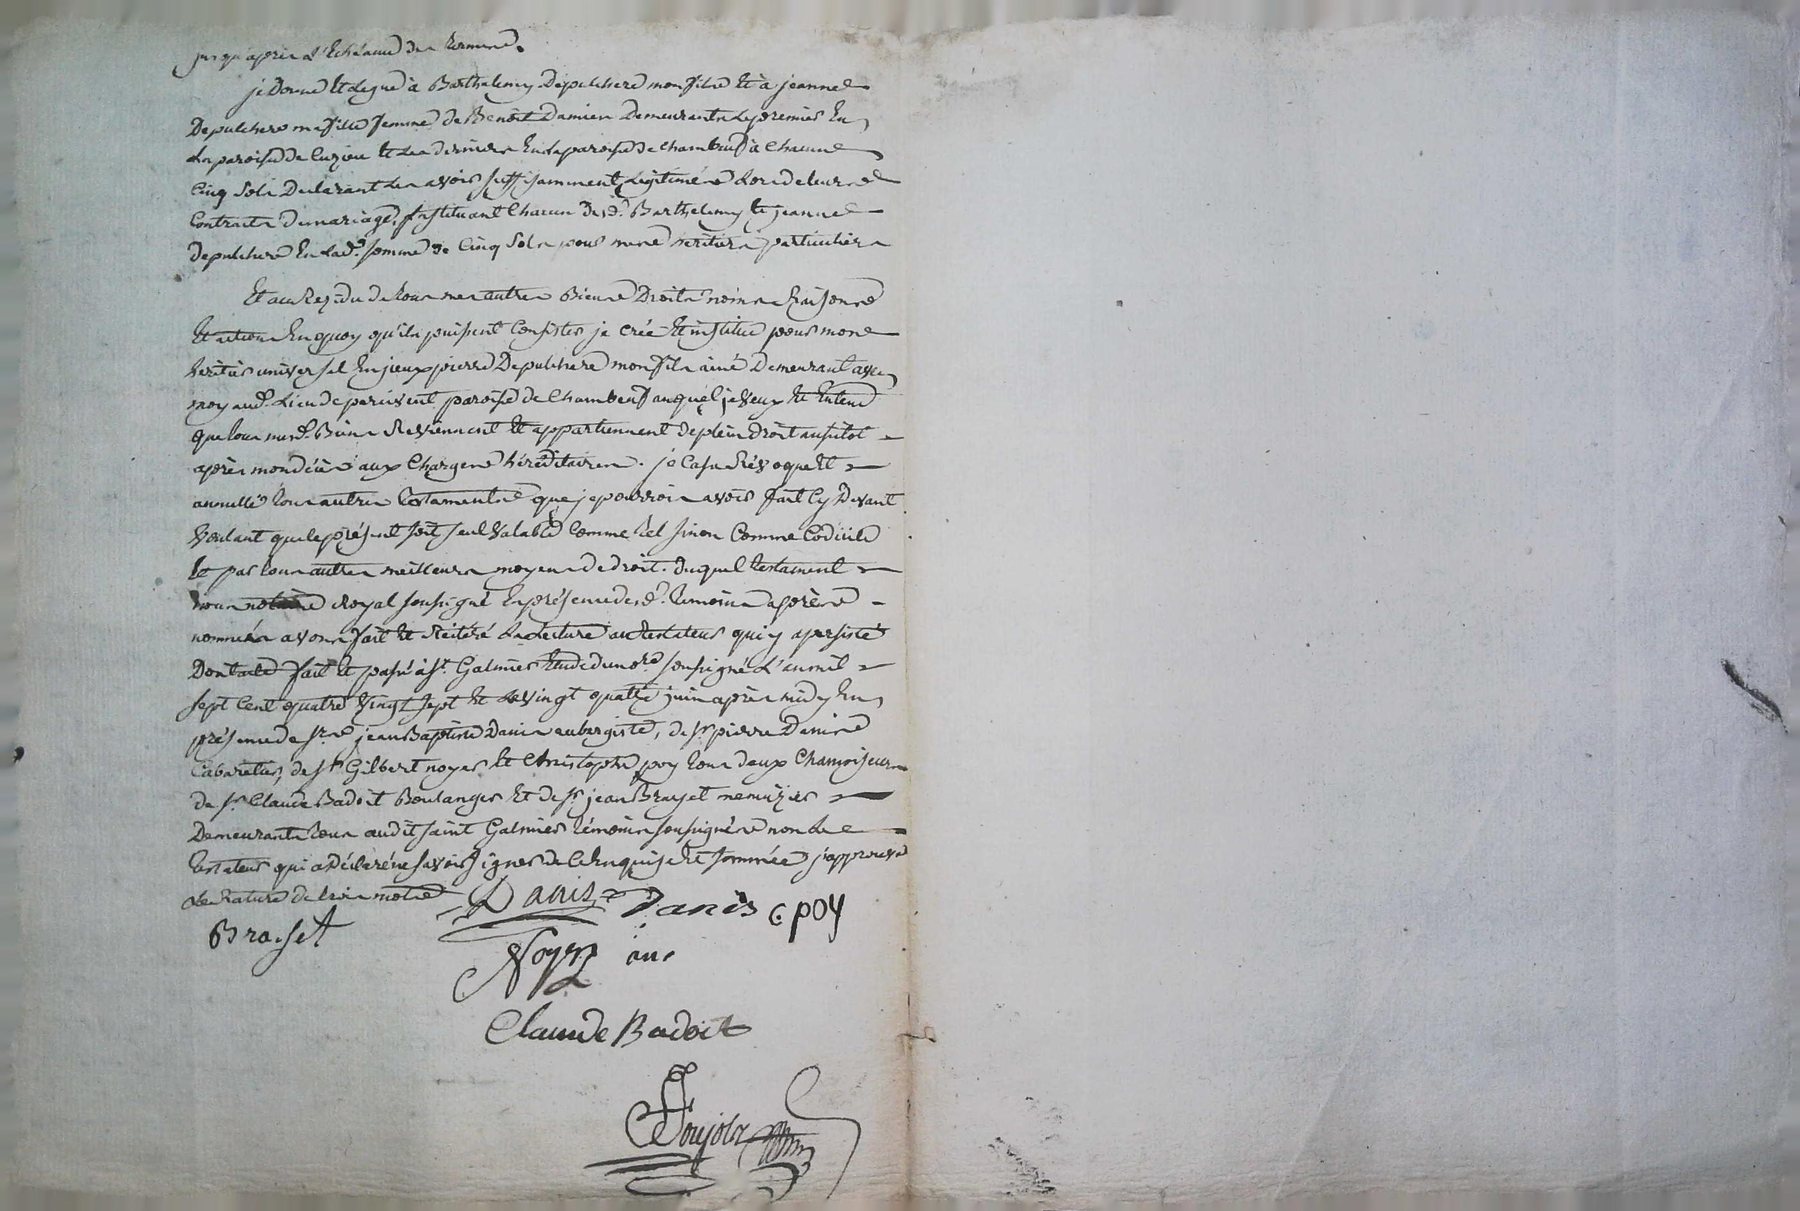 jusqu'aprèz l'Echéance de terme.
je Donne et Legue à Barthelemy Depulchere mon fils et à jeanne
Depulchere ma fille femme de Benoit Damien Demeurants le premier En
la paroisse de Cuzieu et les derniers En la paroisse de Chambeuf à chacun
Cinq sols Declarant les avoir suffisamment Légitimés Lors de leurs
Contrats de mariage, instituant chacun des d. Barthelemy et jeanne
depulchere En lad. somme de Cinq Sols pour mes heritiers particuliers
Et au Rezidu de tous mes autres Biens Droits noms Raisons
Et actions En quoy qu'ils puissent Consister je crée et institue pour mon
heritier universel pierre Depulchere mon fils ainé Demeurant avec
moy aud. Lieu de paroisse de Chambeuf auquel je Veux et Entend
que tous mesd. Biens Reviennent et appartiennent de plein Droit aussitot
après mon décès aux charges héréditaires. je Casse Révoque Et
annulle tous autres testaments que je pourrois avoir fait Cy Devant
Voulant que le présent soit seul Valable Comme tel sinon Comme Codicile
Et par tous autres meilleurs moyens de droit. duquel testament
nous notaire Royal soussigné En présence des témoins après
nommés avons fait et Réitéré la Lecture au testateur qui y a persisté
Dont acte fait et passé à St Galmier Etude du nore soussigné L'an mil
sept Cent quatre Vingt sept et le Vingt quatre juin après midy En
présence de sr jean Baptiste Danis aubergiste, de sr pierre Danis
Cabaretier, de sr Gilbert noyer et Christophe poy tous deux Chamoiseurs
de sr Claude Badoit Boulanger et de sr jean Brayset menuizier
Demeurants tous audit saint Galmier témoins soussignés non le
testateur qui a Déclaré ne savoir signer de ce Enquis et sommé j'approuve
la Rature de trois mots
Danis Danis c. poy
Brayset
Noyer
Claude Badoit